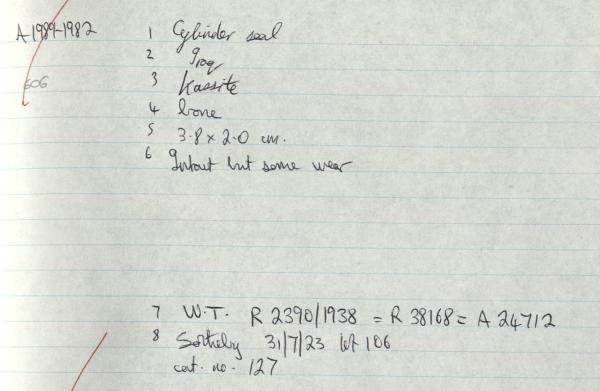 A 1989-1982
1 Cylinder seal
2 Iraq
3 Kassite
606
4 bone
5 3.8 x 2.0 cm.
6 Intact but some wear
7 W.T. R 2390/1938 = R 38168 = A 24712
8 Sotheby 31/7/23 lot 106
cat. no. 127